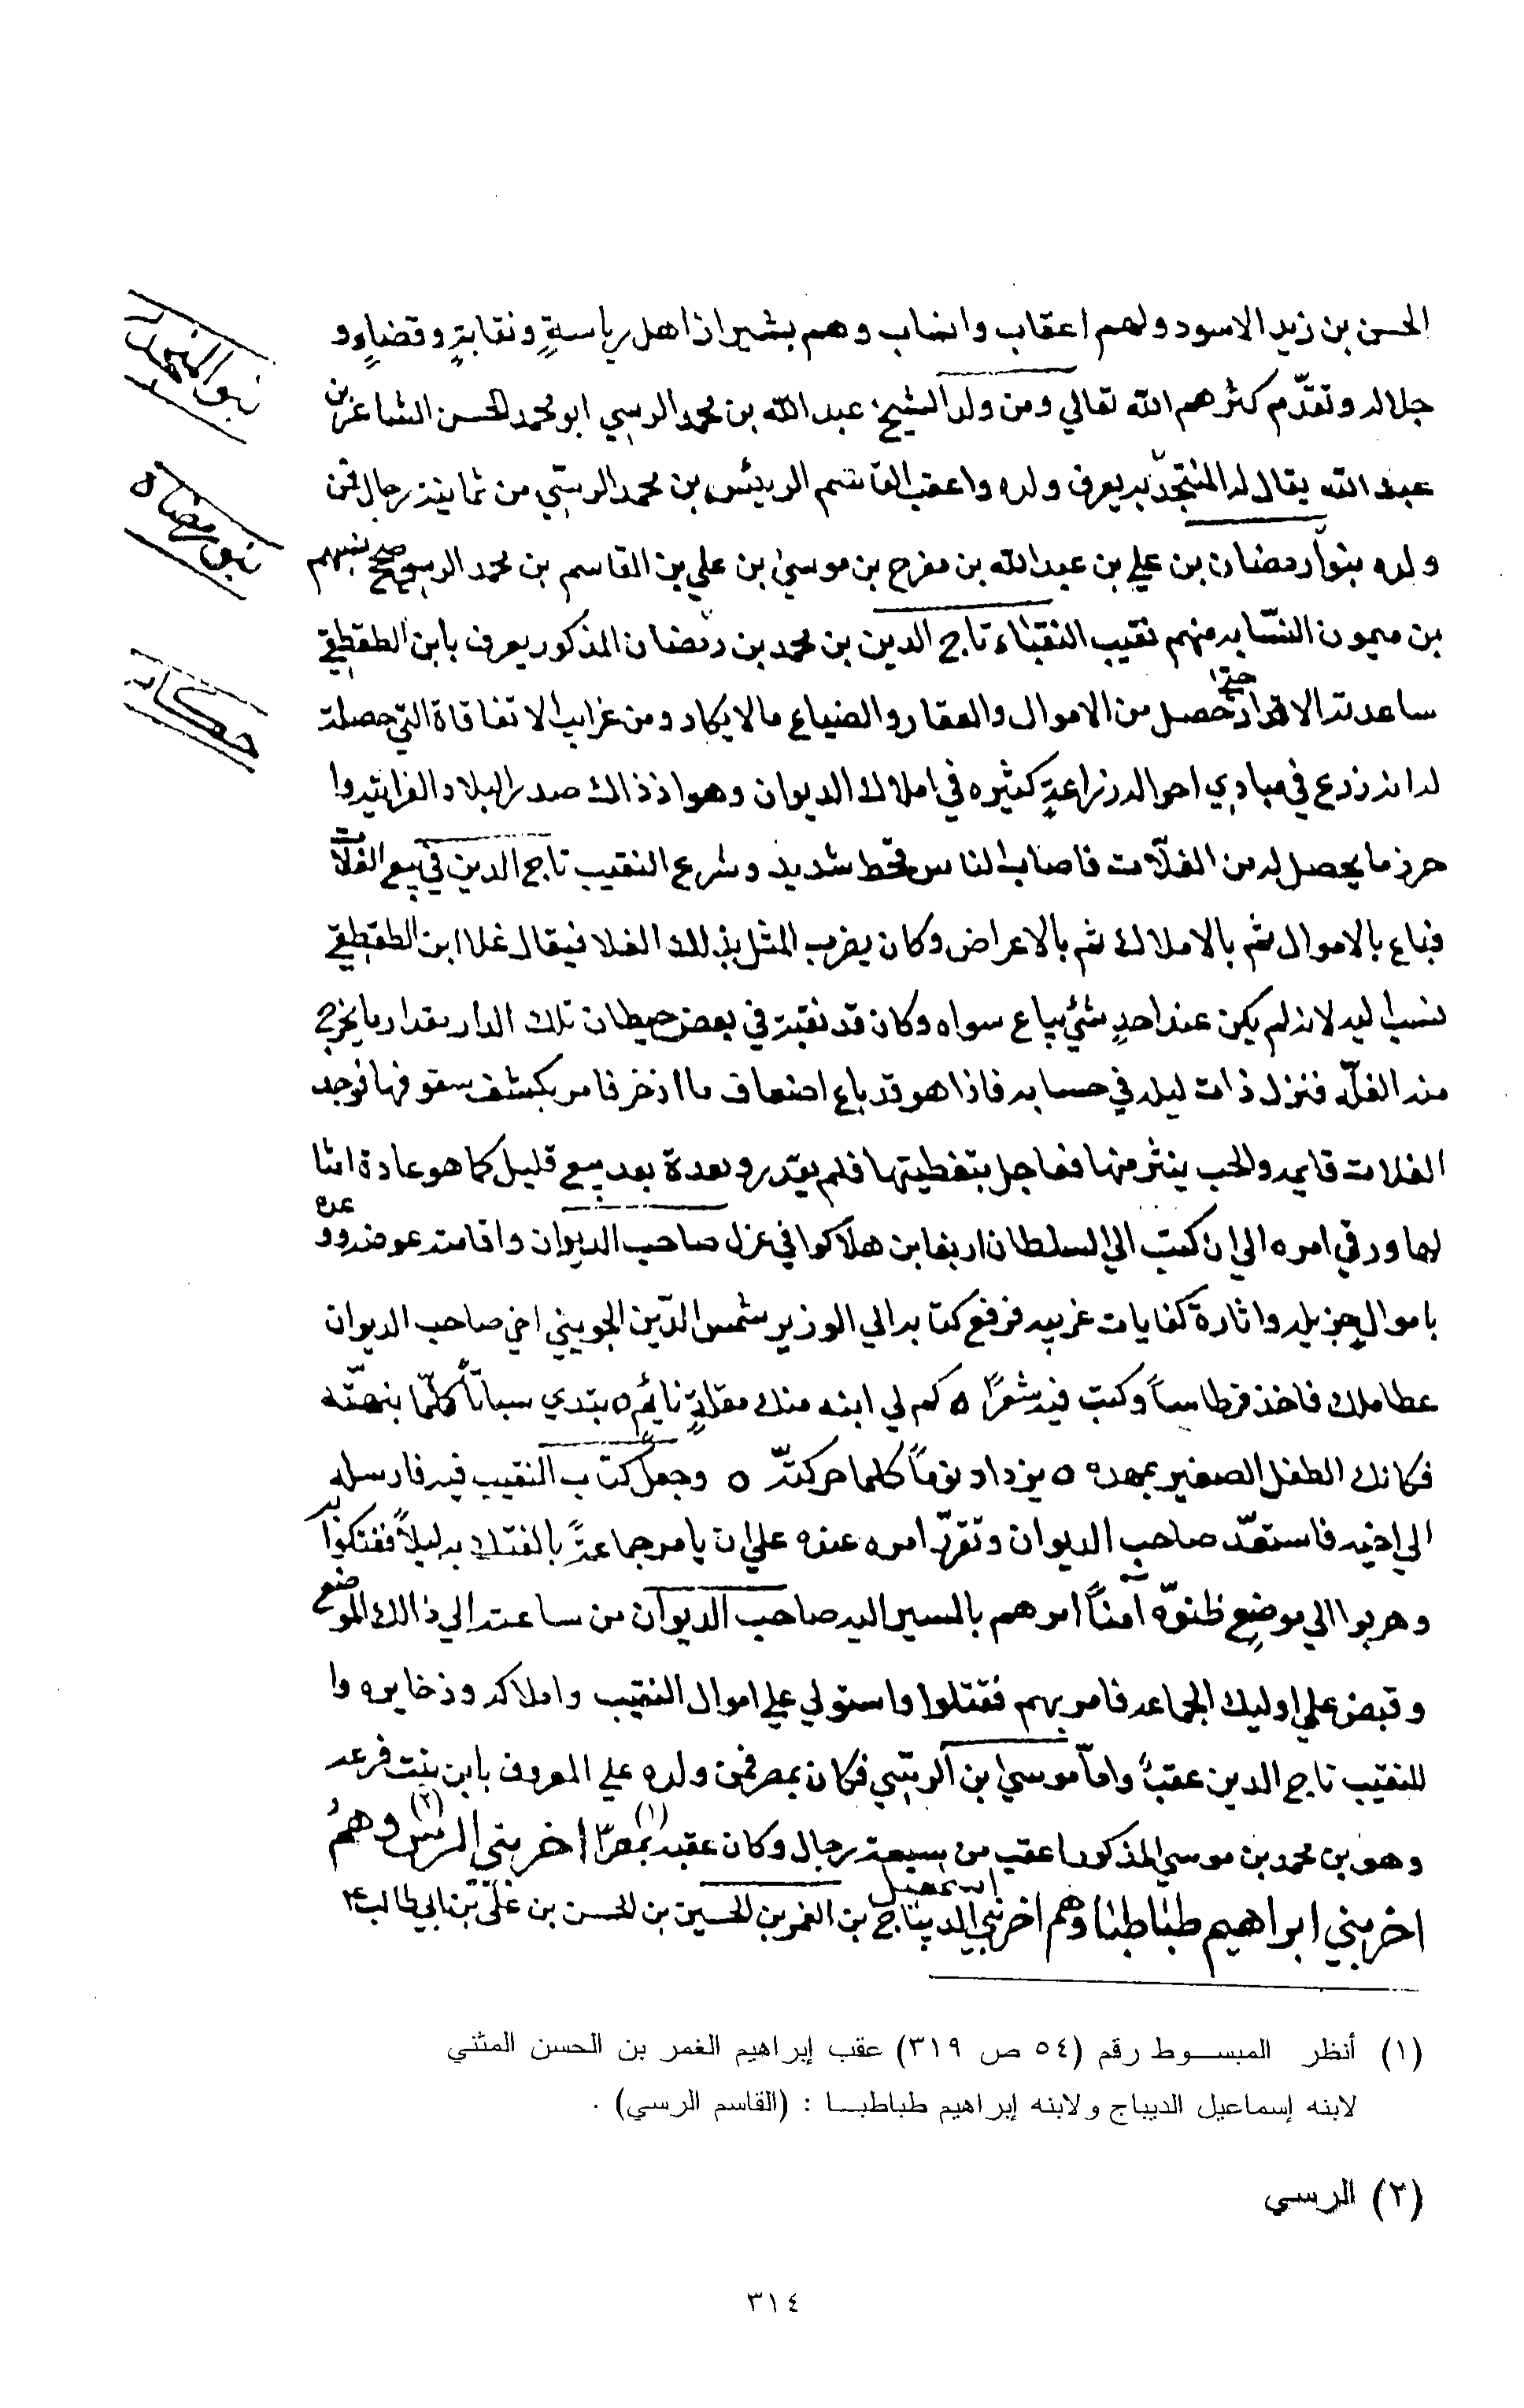 الحسن بن زيد الاسود ولهم اعقاب وانساب وهم بشيراز اهل رياسةٍ ونقابةٍ وقضاءٍ و
جلاله وتقدّم كثرهم الله تعالي ومن ولد الشيخ عبد الله بن محمد الرسي ابو محمد الحسن الشاعر بن
عبد الله يقال له المنتجد به يعرف ولده واعقب القاسم الرييس بن محمد الرسي من ثمانية رجال فمن
ولده بنوا رمضان بن علي بن عبد الله بن مفرح بن موسي بن علي بن القاسم بن محمد الرسي صح نسبهم
بن ميمون النسّابه منهم نقيب النقباء تاج الدين بن محمد بن رمضان المذكور يعرف بابن الطقطقي
ساعدته الاقدار حتي حصل من الاموال والعقار والضياع مالايكاد ومن غرايب الاتفاقاة التي حصلة
له انه زرع في مبادي احواله زراعةٍ كثيره في املاك الديوان وهو اذ ذاك صدر البلاد الفراتيه وا
حرز ما يحصل له من الغلّات فاصاب الناس قحط شديد وشرع النقيب تاج الدين في بيع الغلّات
فباع بالاموال ثم بالاملاك ثم بالاعراض وكان يضرب المثل بذلك الغلا فيقال غلا ابن الطقطقي
نسبا ليه لانه لم يكن عند احدٍ شئ يباع سواه وكان قد نقبة في بعض حيطان تلك الدار بقدار ما يخرج
منه الغلّه فنزل ذات ليله في حسابه فاذا هو قد باع اضعاف ما اذخر فامر بكشف سقوفها فوجد
الغلات قايمه والحب ينثر منها فعاجل بتغطيتها فلم يقدر ونعدة بعد بيع قليل كما هو عادة امثا
لها ورقي امره الي ان كتب الي السلطان اربغا بن هلاكوا في عزل صاحب الديوان واقامته عوضه ووعده
باموالٍ جزيله واثارة كفايات غريبه فرفع كتابه الي الوزير شمس الدّين الجويني اخي صاحب الديوان
عطا ملك فاخذ قرطاساً وكتب فيه شعراً ٥ كم لي ابنه منك مقلةٍ نايمٍ ٥ يبتدي سباتاً كلّما بنهتّه
فكانك الطفل الصغير بمهده ٥ يزداد نوماً كلما حركتهّ ٥ وجعل كتاب النقيب فيه فارسله
الي اخيه فاستعدّ صاحب الديوان وتقرّر امره عنده علي ان يامر جماعةً بالفتك به ليلاً ففتكوا به
وهربوا الي موضعٍ ظنوّه آمناً امرهم بالمسير اليه صاحب الديوان من ساعته الي ذالك الموضع
وقبض علي اوليك الجماعه فامر بهم فقتلوا واستولي علي اموال النقيب واملاكه وذخايره وا
للنقيب تاج الدين عقبٌ وامّا موسي ابن الرسّي فكان بمصر فمن ولده علي المعروف بابن بنت فرعه
وهو بن محمد بن موسي المذكور اعقب من سبعة رجال وكان عقبه بمصر (١) اخر بني الرسي (٢) وهمُ
اخر بني ابراهيم طباطبا وهم اخر بني اسمعيل الديباج بن الغمر بن الحسين بن الحسن بن عليّ بن ابي طالب ع
بنو المنتجد
بنو رمضان
حكايه
(١) أنظر المبسوط رقم (٥٤ ص ٣١٩) عقب إبراهيم الغمر بن الحسن المثني
لابنه إسماعيل الديباج ولابنه إبراهيم طباطبا : (القاسم الرسي) .
(٢) الرسي
٣١٤